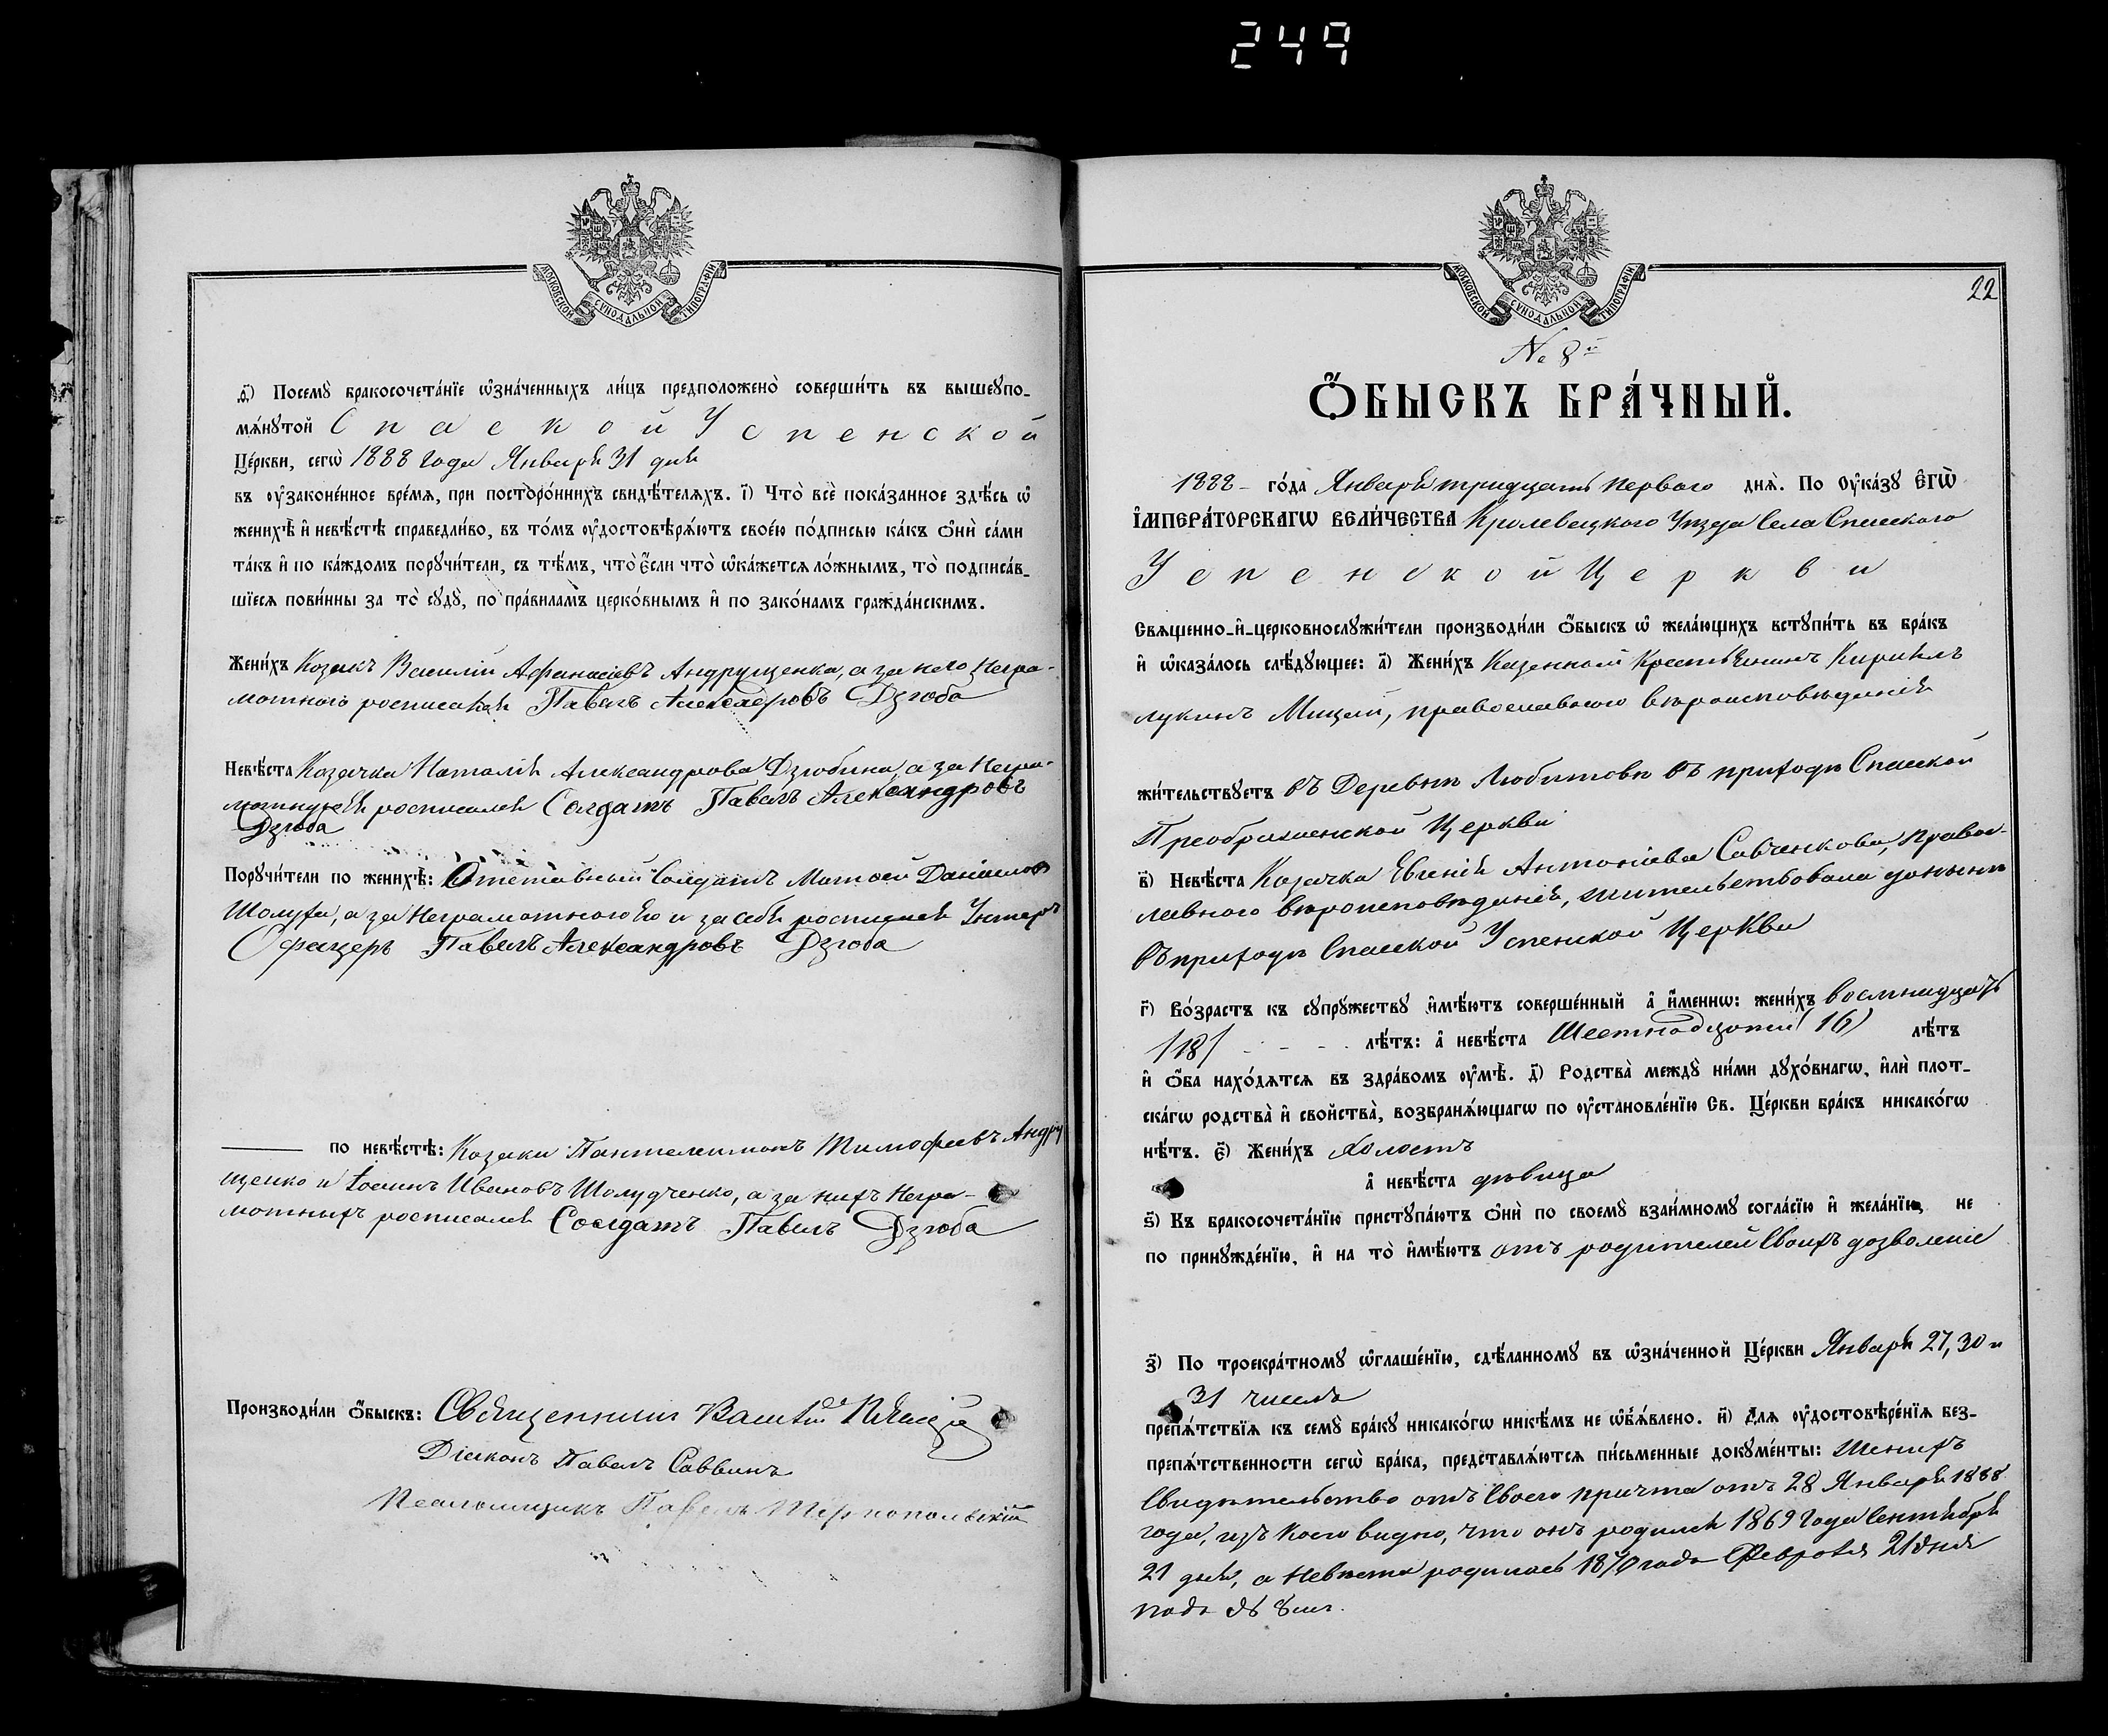 249
МОСКОВСКОЙ СѴНОДАЛЬНОЙ ТИПОГРАФІИ
ѳ҃) Посемꙋ̀ бракосочета́нїе ѡ҆зна́ченныхъ ли́цъ предположено̀ соверши́ть въ вышеꙋпо-
мѧ́нꙋтой Спаской Успенской
Це́ркви, сегѡ̀ 1888 года Января 31 дня
въ ᲂу҆законе́нное вре́мѧ, при посторо́ннихъ свидѣ́телѧхъ. і҃) Что̀ всѐ пока́занное здѣ́сь ѡ҆
женихѣ̀ и҆ невѣ́стѣ справедли́во, въ то́мъ ᲂу҆достовѣрѧ́ютъ свое́ю по́дписью ка́къ ѻ҆нѝ са́ми
та́къ и҆ по ка́ждомъ порꙋчи́тели, съ тѣ́мъ, что̀ є҆́сли что̀ ѡ҆ка́жетсѧ ло́жнымъ, то̀ подписа́в-
шїесѧ пови́нны за то̀ сꙋдꙋ̀, по пра́виламъ церко́внымъ и҆ по зако́намъ гражда́нскимъ.
Жени́хъ Козакъ Василій Афанасіевъ Андрущенко, а за него негра-
мотного росписался Павелъ Александровъ Дзюба
Невѣ́ста Козачка Наталія Александрова Дзюбина, а за негра-
мотную ея росписался Солдатъ Павелъ Александровъ
Дзюба
Порꙋчи́тели по женихѣ̀: Отставной Солдатъ Матѳей Даніиловъ
Шолуха, а за неграмотного его и за себя росписался Унтеръ
Офицеръ Павелъ Александровъ Дзюба
по невѣ́стѣ: Козаки Пантелеимонъ Тимофеевъ Андру
щенко и Іоаннъ Ивановъ Шолудченко, а за нихъ негра-
мотныхъ росписался Солдатъ Павелъ Дзюба
Производи́ли ѻ҆́быскъ: Священникъ
Діаконъ Павелъ Саввинъ
Псаломщикъ Павелъ Тернопольскій
МОСКОВСКОЙ СѴНОДАЛЬНОЙ ТИПОГРАФІИ
22
№ 8й
Ѻ҆́БЫСКЪ БРА́ЧНЫЙ.
1888 – го́да Января тридцать первого днѧ̀. По ᲂу҆ка́зꙋ Є҆ГѠ̀
І҆МПЕРА́ТОРСКАГѠ ВЕЛИ́ЧЕСТВА Кролевецкого Уѣзда Села Спаского
Успенской Церкви
Свѧщенно-и҆-церковнослꙋжи́тели производи́ли ѻ҆́быскъ ѡ҆ жела́ющихъ встꙋпи́ть въ бра́къ
и҆ ѡ҆каза́лось слѣ́дꙋющее: а҃) Жени́хъ Казенный Крестьянинъ Кирилъ
Лукинъ Мицай, православного вѣроисповѣданія
жи́тельствꙋетъ въ Деревнѣ Любитовѣ въ приходѣ Спаской
Преображенской Церкви
в҃) Невѣ́ста Козачка Евгенія Антоніева Савченкова, право-
славного вѣроисповѣданія, жительствовала донынѣ
въ приходѣ Спаской Успенской Церкви
г҃) Во́зрастъ къ сꙋпрꙋ́жествꙋ и҆мѣ́ютъ соверше́нный а҆ и҆́меннѡ: жени́хъ восмнадцать
/18/ - - - - лѣ́тъ: а҆ невѣ́ста Шестнадцати (16) лѣ́тъ
и҆ ѻ҆́ба нахо́дѧтсѧ въ здра́вомъ ᲂу҆мѣ̀. д҃) Родства̀ междꙋ̀ ни́ми дꙋхо́внагѡ, и҆лѝ плот-
ска́гѡ родства̀ и҆ свойства̀, возбранѧ́ющагѡ по ᲂу҆становле́нїю Св. Це́ркви бра́къ никако́гѡ
нѣ́тъ. є҃) Жени́хъ холостъ
а҆ невѣ́ста дѣвица
ѕ҃) Къ бракосочета́нїю пристꙋпа́ютъ ѻ҆нѝ по своемꙋ̀ взаи́мномꙋ согла́сїю и҆ жела́нїю, не
по принꙋжде́нїю, и҆ на то̀ и҆мѣ́ютъ отъ родителей своихъ дозволеніе
з҃) По троекра́тномꙋ ѡ҆глаше́нїю, сдѣ́ланномꙋ въ ѡ҆зна́ченной Це́ркви Января 27, 30 и
31 числа
препѧ́тствїѧ къ семꙋ̀ бра́кꙋ никако́гѡ никѣ́мъ не ѡ҆б̾ѧ́влено. и҃) Длѧ ᲂу҆достовѣре́нїѧ без-
препѧ́тственности сегѡ̀ бра́ка, представлѧ́ютсѧ пи́сьменные докꙋме́нты: Женихъ
свидѣтельство отъ своего причта отъ 28 Января 1888
года, изъ коего видно, что онъ родился 1869 года Сентября
21 дня, а Невеста родилась 1870 года Февраля 21 дня
подъ № 8мъ.